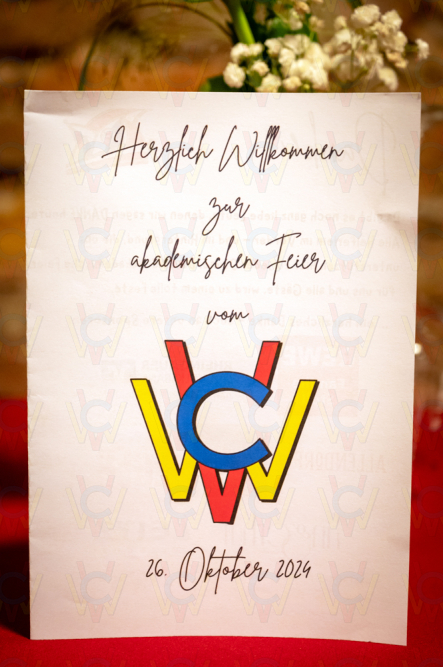 Herzlich Willkommen
zur
akademischen Feier
vom
WCV
26. Oktober 2024